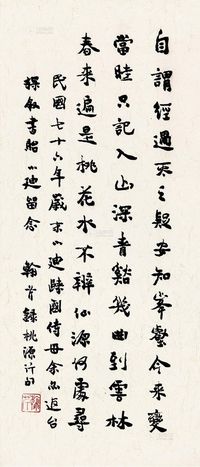 自謂經過安知峯壑今來變
當時只記入山深青谿幾曲到雲林
春來遍是桃花水不辨仙源何處尋
民國七十六年歲末小迪歸國侍母余亦返台
探敘書貽小迪留念 翰錄桃源行句